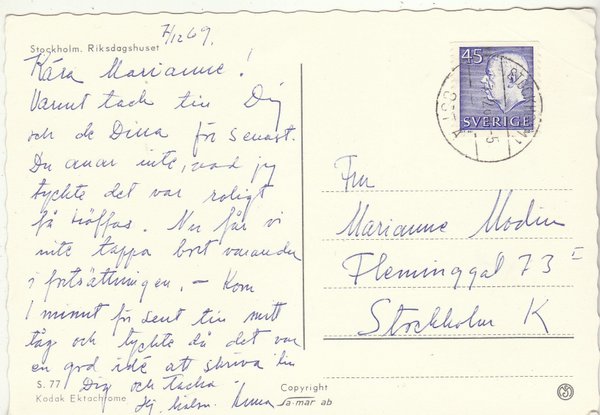 7/12 69.
Stockholm. Riksdagshuset
Kära Marianne!
Varmt tack till Dig
och de Dina för senast.
Du anar inte, vad jag
tyckte det var roligt
få träffas. Nu får vi
inte tappa bort varandra
i fortsättningen. – Kom
1 minut för sent till mitt
tåg och tyckte då det var
en god idé att skriva till
Dig och tacka.
Hej, hälsn. Anna
S. 77
Kodak Ektachrome
Copyright
Sa-mar ab
45
SVERIGE
Fru
Marianne Modin
Fleminggat 73 I
Stockholm K